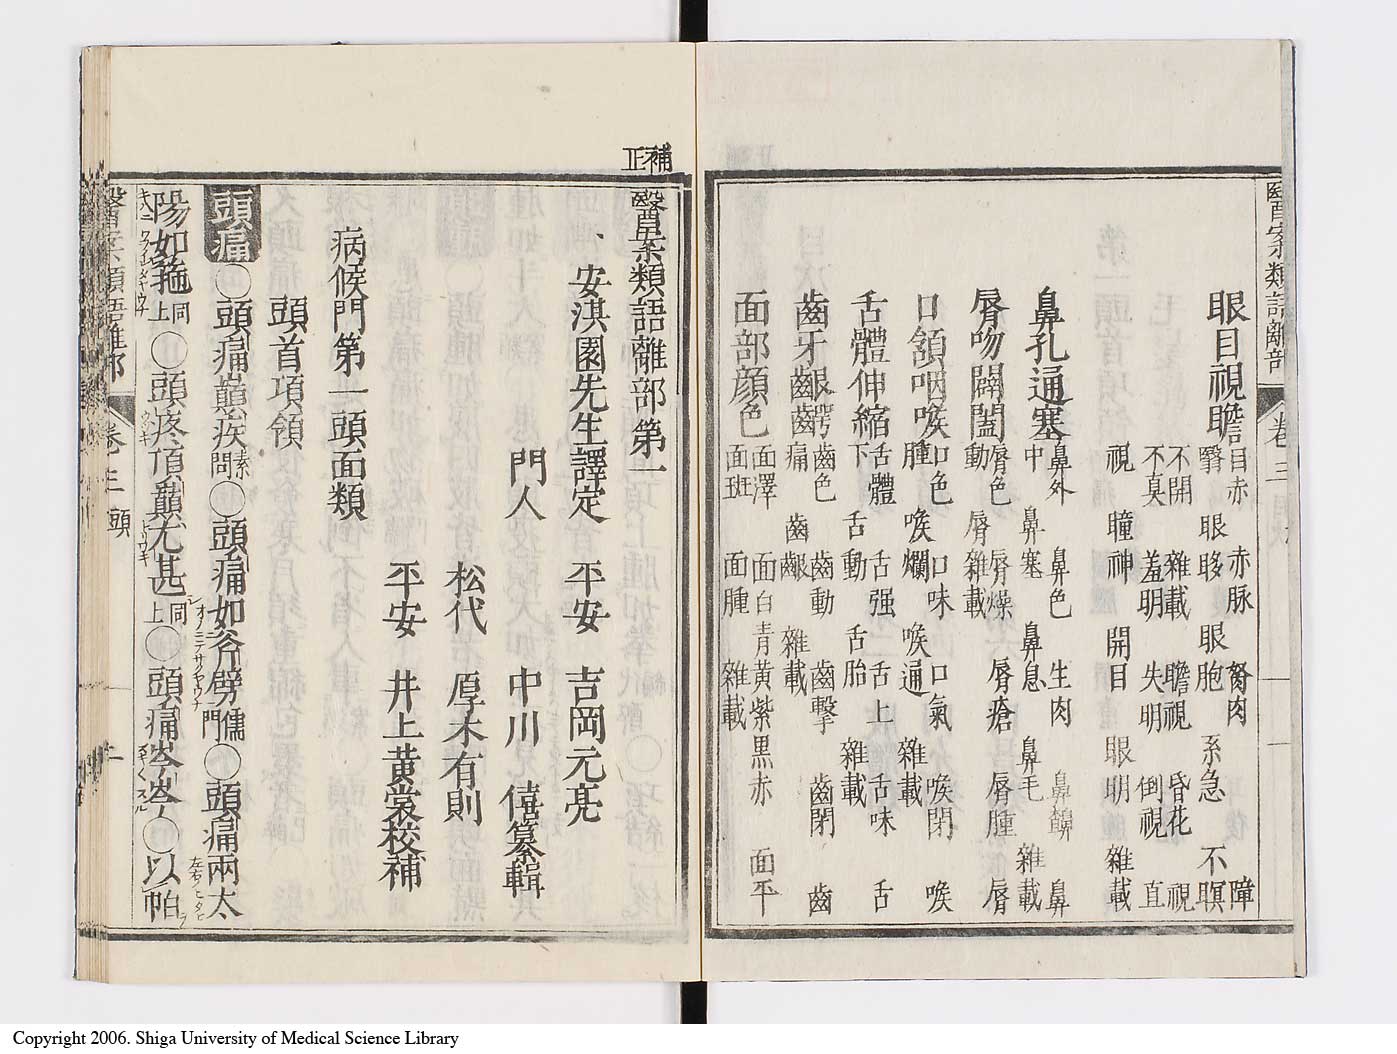 醫案類語離部 卷三
眼目視瞻 目赤 赤脉 胬肉 障翳 眼眵 眼胞 系急 不瞑
不開 雜載 瞻視 昏花 視不臭 羞明 失明 倒視 直
視 瞳神 開目 眼明 雜載
鼻孔通塞 鼻外 鼻色 生肉 鼻齆 鼻中 鼻塞 鼻息 鼻毛 雜載
脣吻闢闔 脣色 脣燥 脣瘡 脣腫 脣動 脣雜載
口頷咽喉 口色 口味 口氣 喉閉 喉腫 喉爛 喉通 雜載
舌體伸縮 舌體 舌强 舌上 舌味 舌下 舌動 舌胎 雜載
齒牙齦齶 齒色 齒動 齒擊 齒閉 齒痛 齒齦 雜載
面部顔色 面澤 面白青黃紫黒赤 面平 面班 面腫 雜載
補正
醫案類語離部第一
安淇園先生譯定 平安 吉岡元亮
門人 中川 僖纂輯
松代 厚木有則
平安 井上黄裳校補
病候門第一頭面類
頭首項領
頭痛 ○頭痛巓疾素問○頭痛如斧劈儒門○頭痛兩太
陽如箍同上○頭疼頂巓尤甚同上○頭痛岑岑○以帕
醫案類語離部 卷三 頭 一
Copyright 2006. Shiga University of Medical Science Library